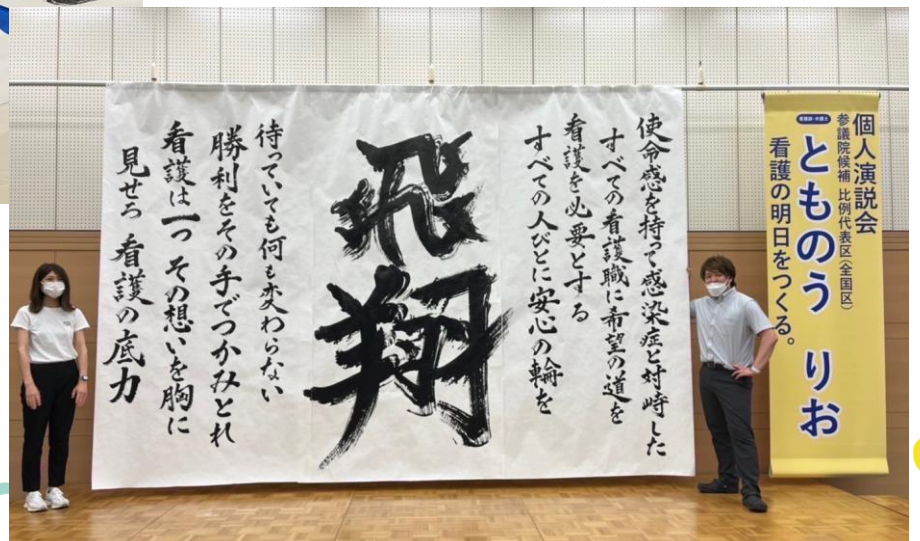 個人演説会
参議院候補 比例代表区(全国区)
看護師・弁護士
とものう りお
看護の明日をつくる。
使命感を持って感染症と対峙した
すべての看護職に希望の道を
看護を必要とする
すべての人びとに安心の輪を
飛翔
待っていても何も変わらない
勝利をその手でつかみとれ
看護は一つ その想いを胸に
見せろ 看護の底力